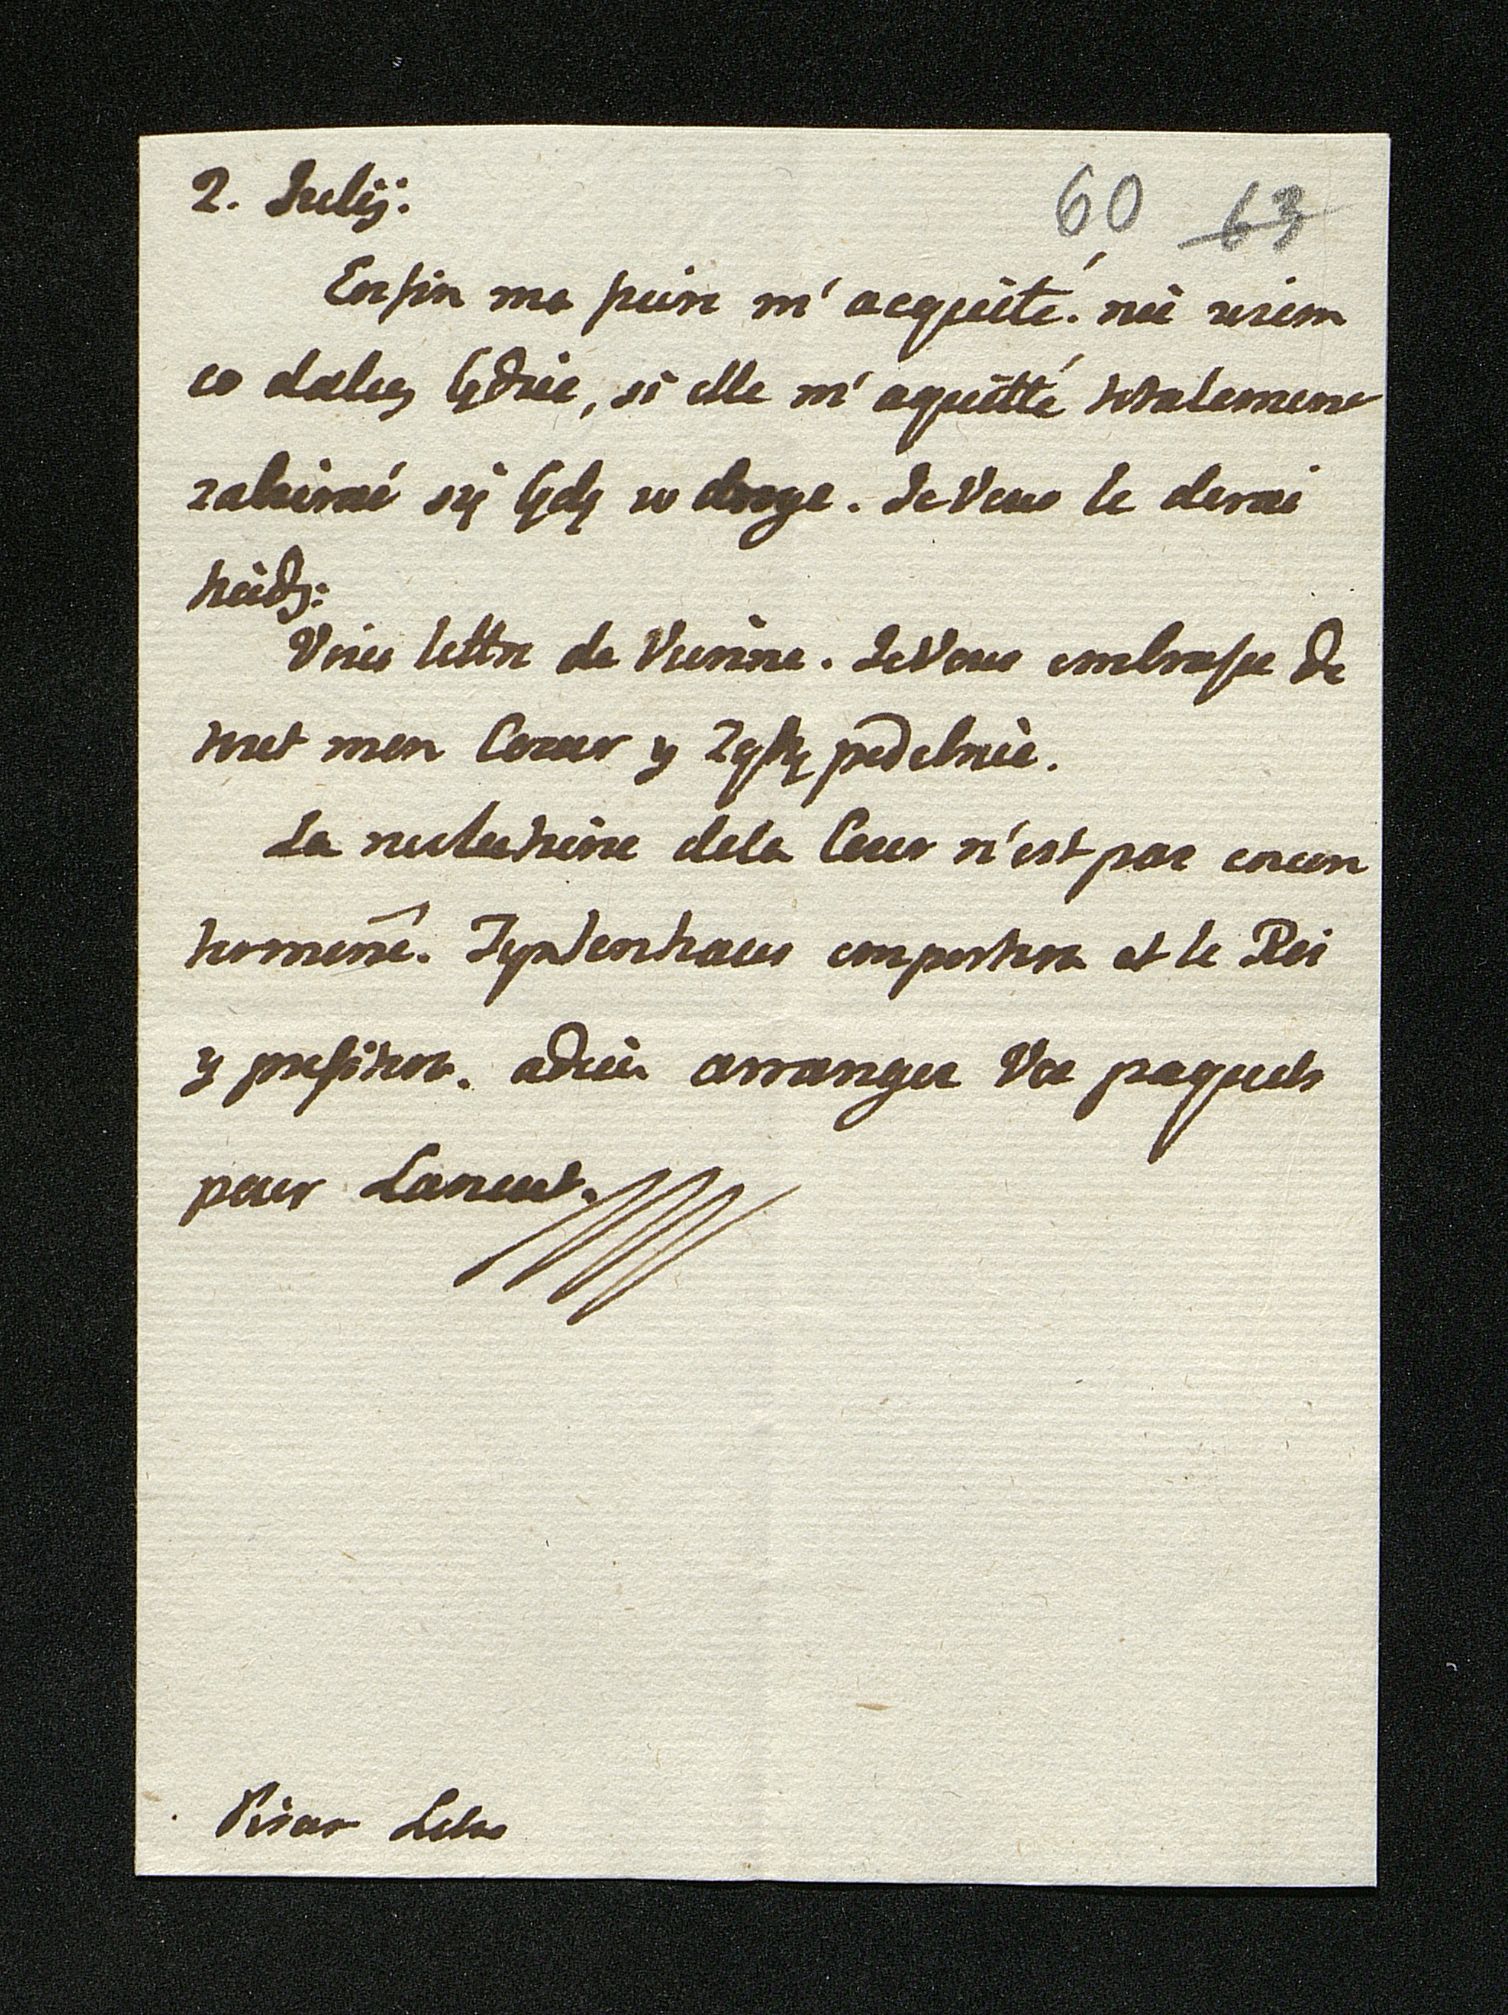 2. Julij.
60 63
Enfin ma fievre m'acquité. nie wiem
co daley będzie, si elle m'aquitté totalement
zabierać się będę w drogę. Je Vous le dirai
Voici lettre de Vienne. Je Vous embrasse de
tout mon Coeur y Zosię podobnie.
La de la Cour n'est pas encore
terminé. Tyzenhaus emportera et le Roi
y profitera. adieu arrangez Vos paquets
pour Lancut.
Pisar Lit